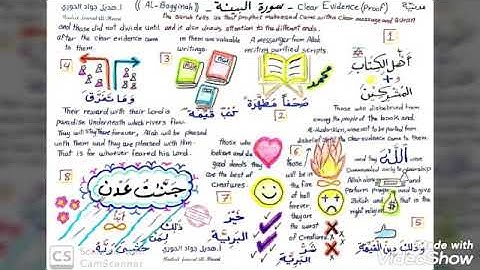 أ.هديل جواد الدوري (( AL-Bayyinah )) - سورة البينة - Clear Evidence (Proof) مدنية
Hadeel Jawad AL-Douri
The surah tells us that prophet muhammad came with a clear message and Quran
and draws attention to the different ends.
and those did not divide until after the clear evidence came to them
in them are valuable writings.
A messenger from Allah reciting purified scripts.
أهل الكتاب
+
المشركين
1
محمد
صحفاً مطهرة
2
كتب قيمة
3
4
وما تفرق
Those who disbelieved from among the people of the book and
evidence came to them.
5
and they were commanded only to worship Allah alone and Perform prayer and to give Zakah and that is the right religion
الله
وذلك دين القيمة
6
those who
will be in the fire of hell forever,
they are the worst of creatures.
شر
البرية
7
those who believe and do good deeds they are the best of creatures
خير
البرية
8
Their reward with their Lord is paradise Underneath which rivers flow.
They will stay there forever, Allah will be pleased with them and they are pleased with Him.
That is for whoever feared his Lord.
جنات عدن
ذلك
لمن
خشي ربه
أ.هديل جواد الدوري
Hadeel Jawad AL-Douri
CS CamScanner
Made with
VideoShow